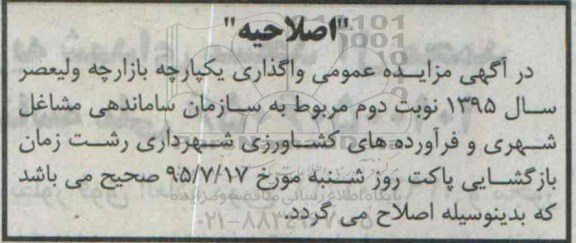 "اصلاحیه"
در آگهی مزایده عمومی واگذاری یکپارچه بازارچه ولیعصر
سال ۱۳۹۵ نوبت دوم مربوط به سازمان ساماندهی مشاغل
شهری و فرآورده های کشاورزی شهرداری رشت زمان
بازگشایی پاکت روز شنبه مورخ ۹۵/۷/۱۷ صحیح می باشد
که بدینوسیله اصلاح می گردد.